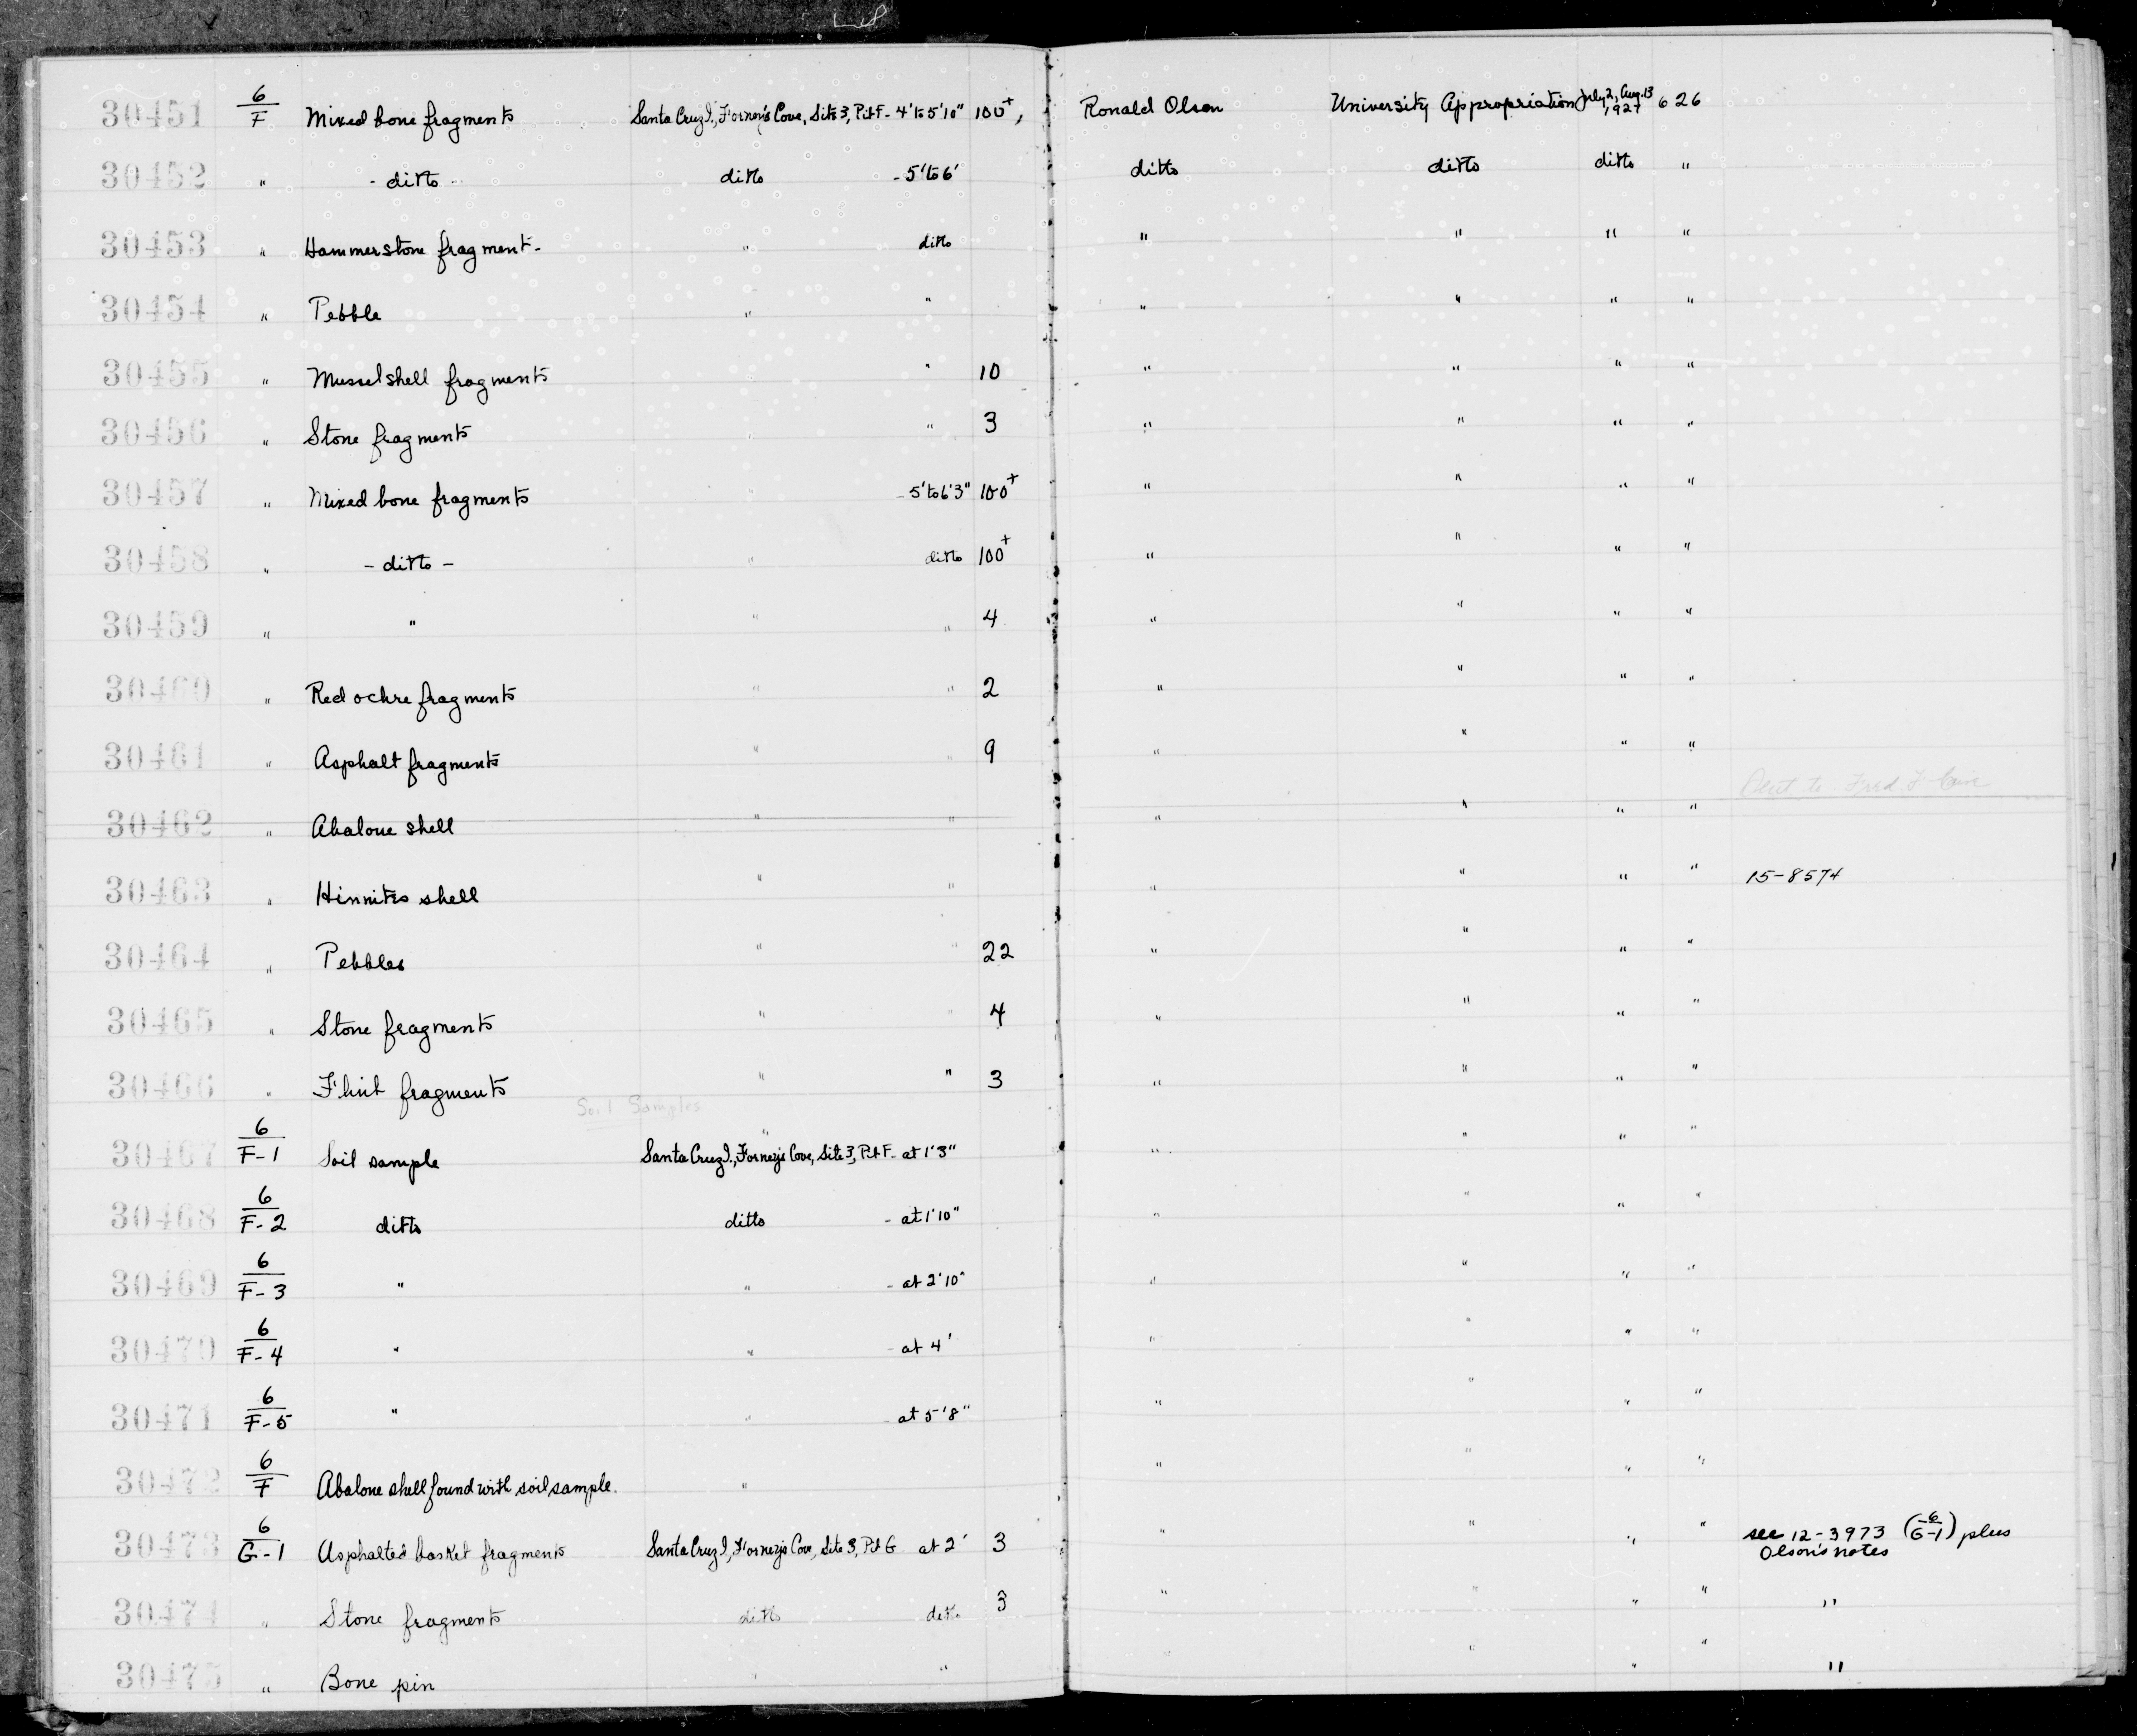 30451 6/F Mixed bone fragments Santa Cruz I., Forney's Cove, Site 3, Pit F - 4' to 5'10" 100+, Ronald Olson University Appropriation July 2, Aug. 13 1927 626
30452 " - ditto - ditto - 5' to 6' ditto ditto ditto "
30453 " Hammerstone fragment - " ditto " " " "
30454 " Pebble " " " " " "
30455 " Mussel shell fragments " " 10 " " " "
30456 " Stone fragments " " 3 " " " "
30457 " Mixed bone fragments " - 5' to 6'3" 100+ " " " "
30458 " - ditto - " ditto 100+ " " " "
30459 " " " " 4 " " " "
30460 " Red ochre fragments " " 2 " " " "
30461 " Asphalt fragments " " 9 " " " "
30462 " Abalone shell " " " " " " Sent to Fred
30463 " Hinnites shell " " " " " " 15-8574
30464 " Pebbles " " 22 " " " "
30465 " Stone fragments " " 4 " " " "
30466 " Flint fragments " " 3 " " " "
Soil Samples
30467 6/F-1 Soil sample Santa Cruz I., Forney's Cove, Site 3, Pit F - at 1'3" " " " "
30468 6/F-2 ditto ditto - at 1'10" " " " "
30469 6/F-3 " " - at 2'10" " " " "
30470 6/F-4 " " - at 4' " " " "
30471 6/F-5 " " - at 5'8" " " " "
30472 6/F Abalone shell found with soil sample. " " " " "
30473 6/G-1 Asphalted basket fragments Santa Cruz I., Forney's Cove, Site 3, Pit G at 2' 3 " " " " see 12-3973 (6/G-1) plus
Olson's notes
30474 " Stone fragments ditto ditto 3 " " " " "
30475 " Bone pin " " " " " " "